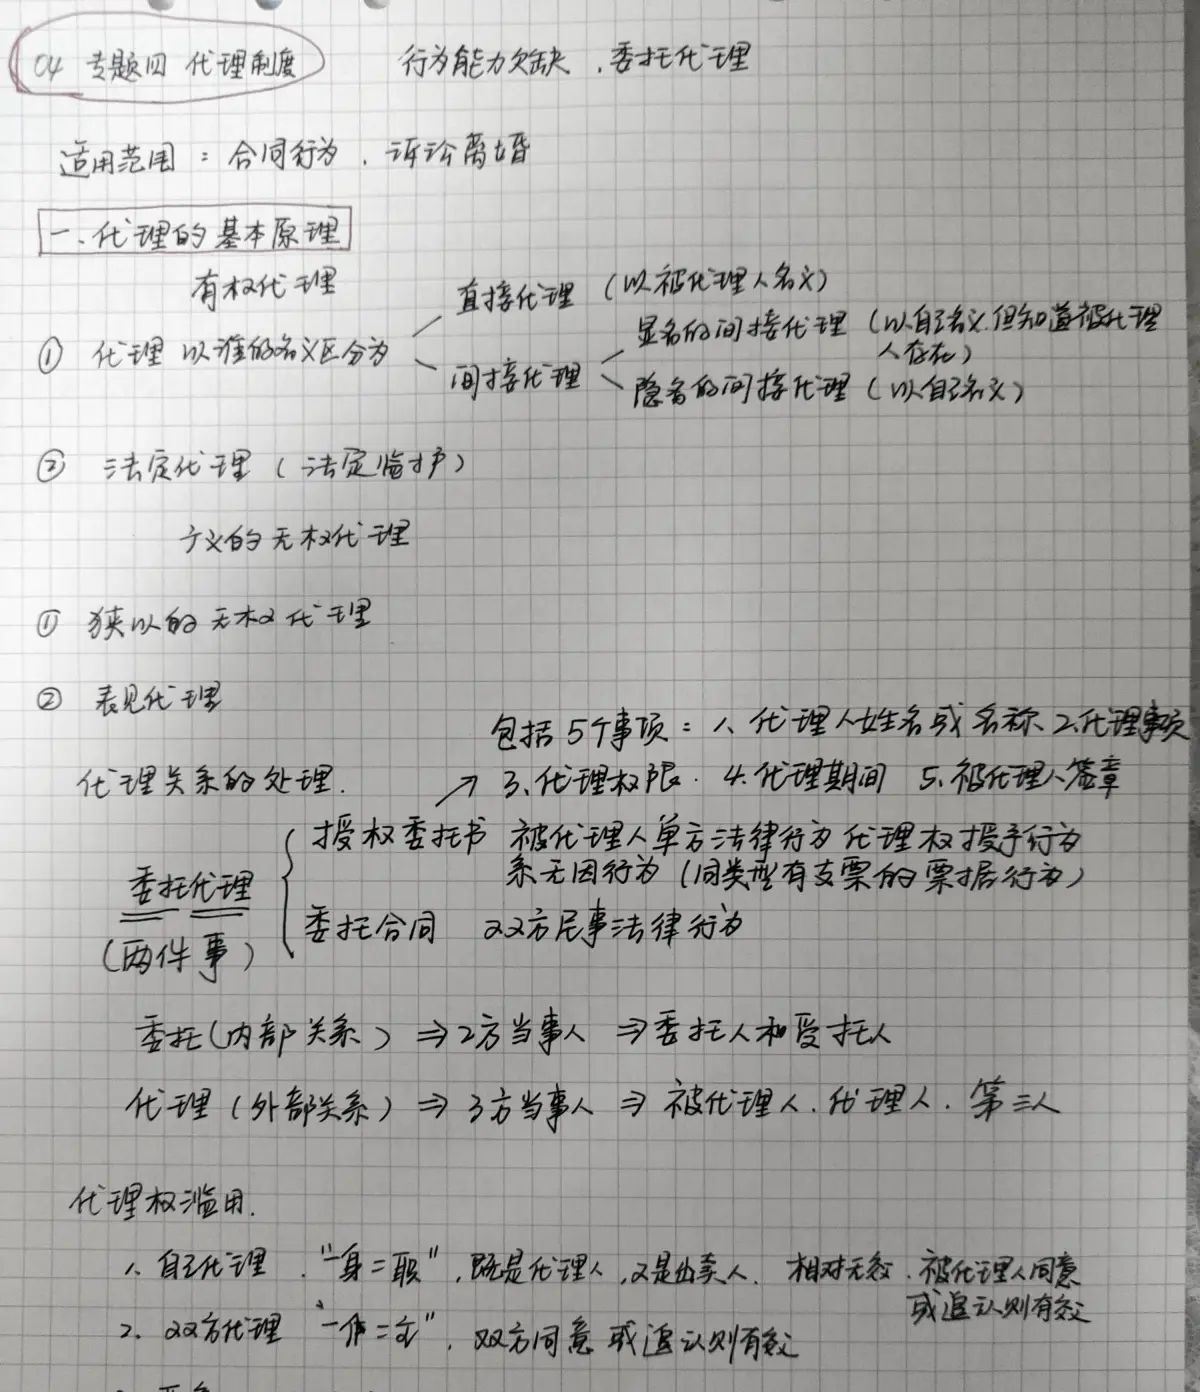 04 专题四 代理制度 行为能力欠缺、委托代理
适用范围：合同行为、诉讼离婚
一、代理的基本原理
有权代理
直接代理（以被代理人名义）
① 代理 以谁的名义区分为
间接代理
显名的间接代理（以自己名义，但知道被代理
人存在）
隐名的间接代理（以自己名义）
② 法定代理（法定监护）
广义的无权代理
① 狭以的无权代理
② 表见代理
代理关系的处理.
包括5个事项：1、代理人姓名或名称 2、代理事项
→ 3、代理权限. 4、代理期间 5、被代理人签章
委托代理
（两件事）
授权委托书 被代理人单方法律行为 代理权授予行为
系无因行为（同类型有支票的票据行为）
委托合同 双方民事法律行为
委托（内部关系）⇒2方当事人 ⇒委托人和受托人
代理（外部关系）⇒3方当事人 ⇒被代理人、代理人、第三人
代理权滥用.
1、自己代理、“一身二职”，既是代理人，又是出卖人. 相对无效、被代理人同意
或追认则有效
2、双方代理 “一仆二主”，双方同意或追认则有效